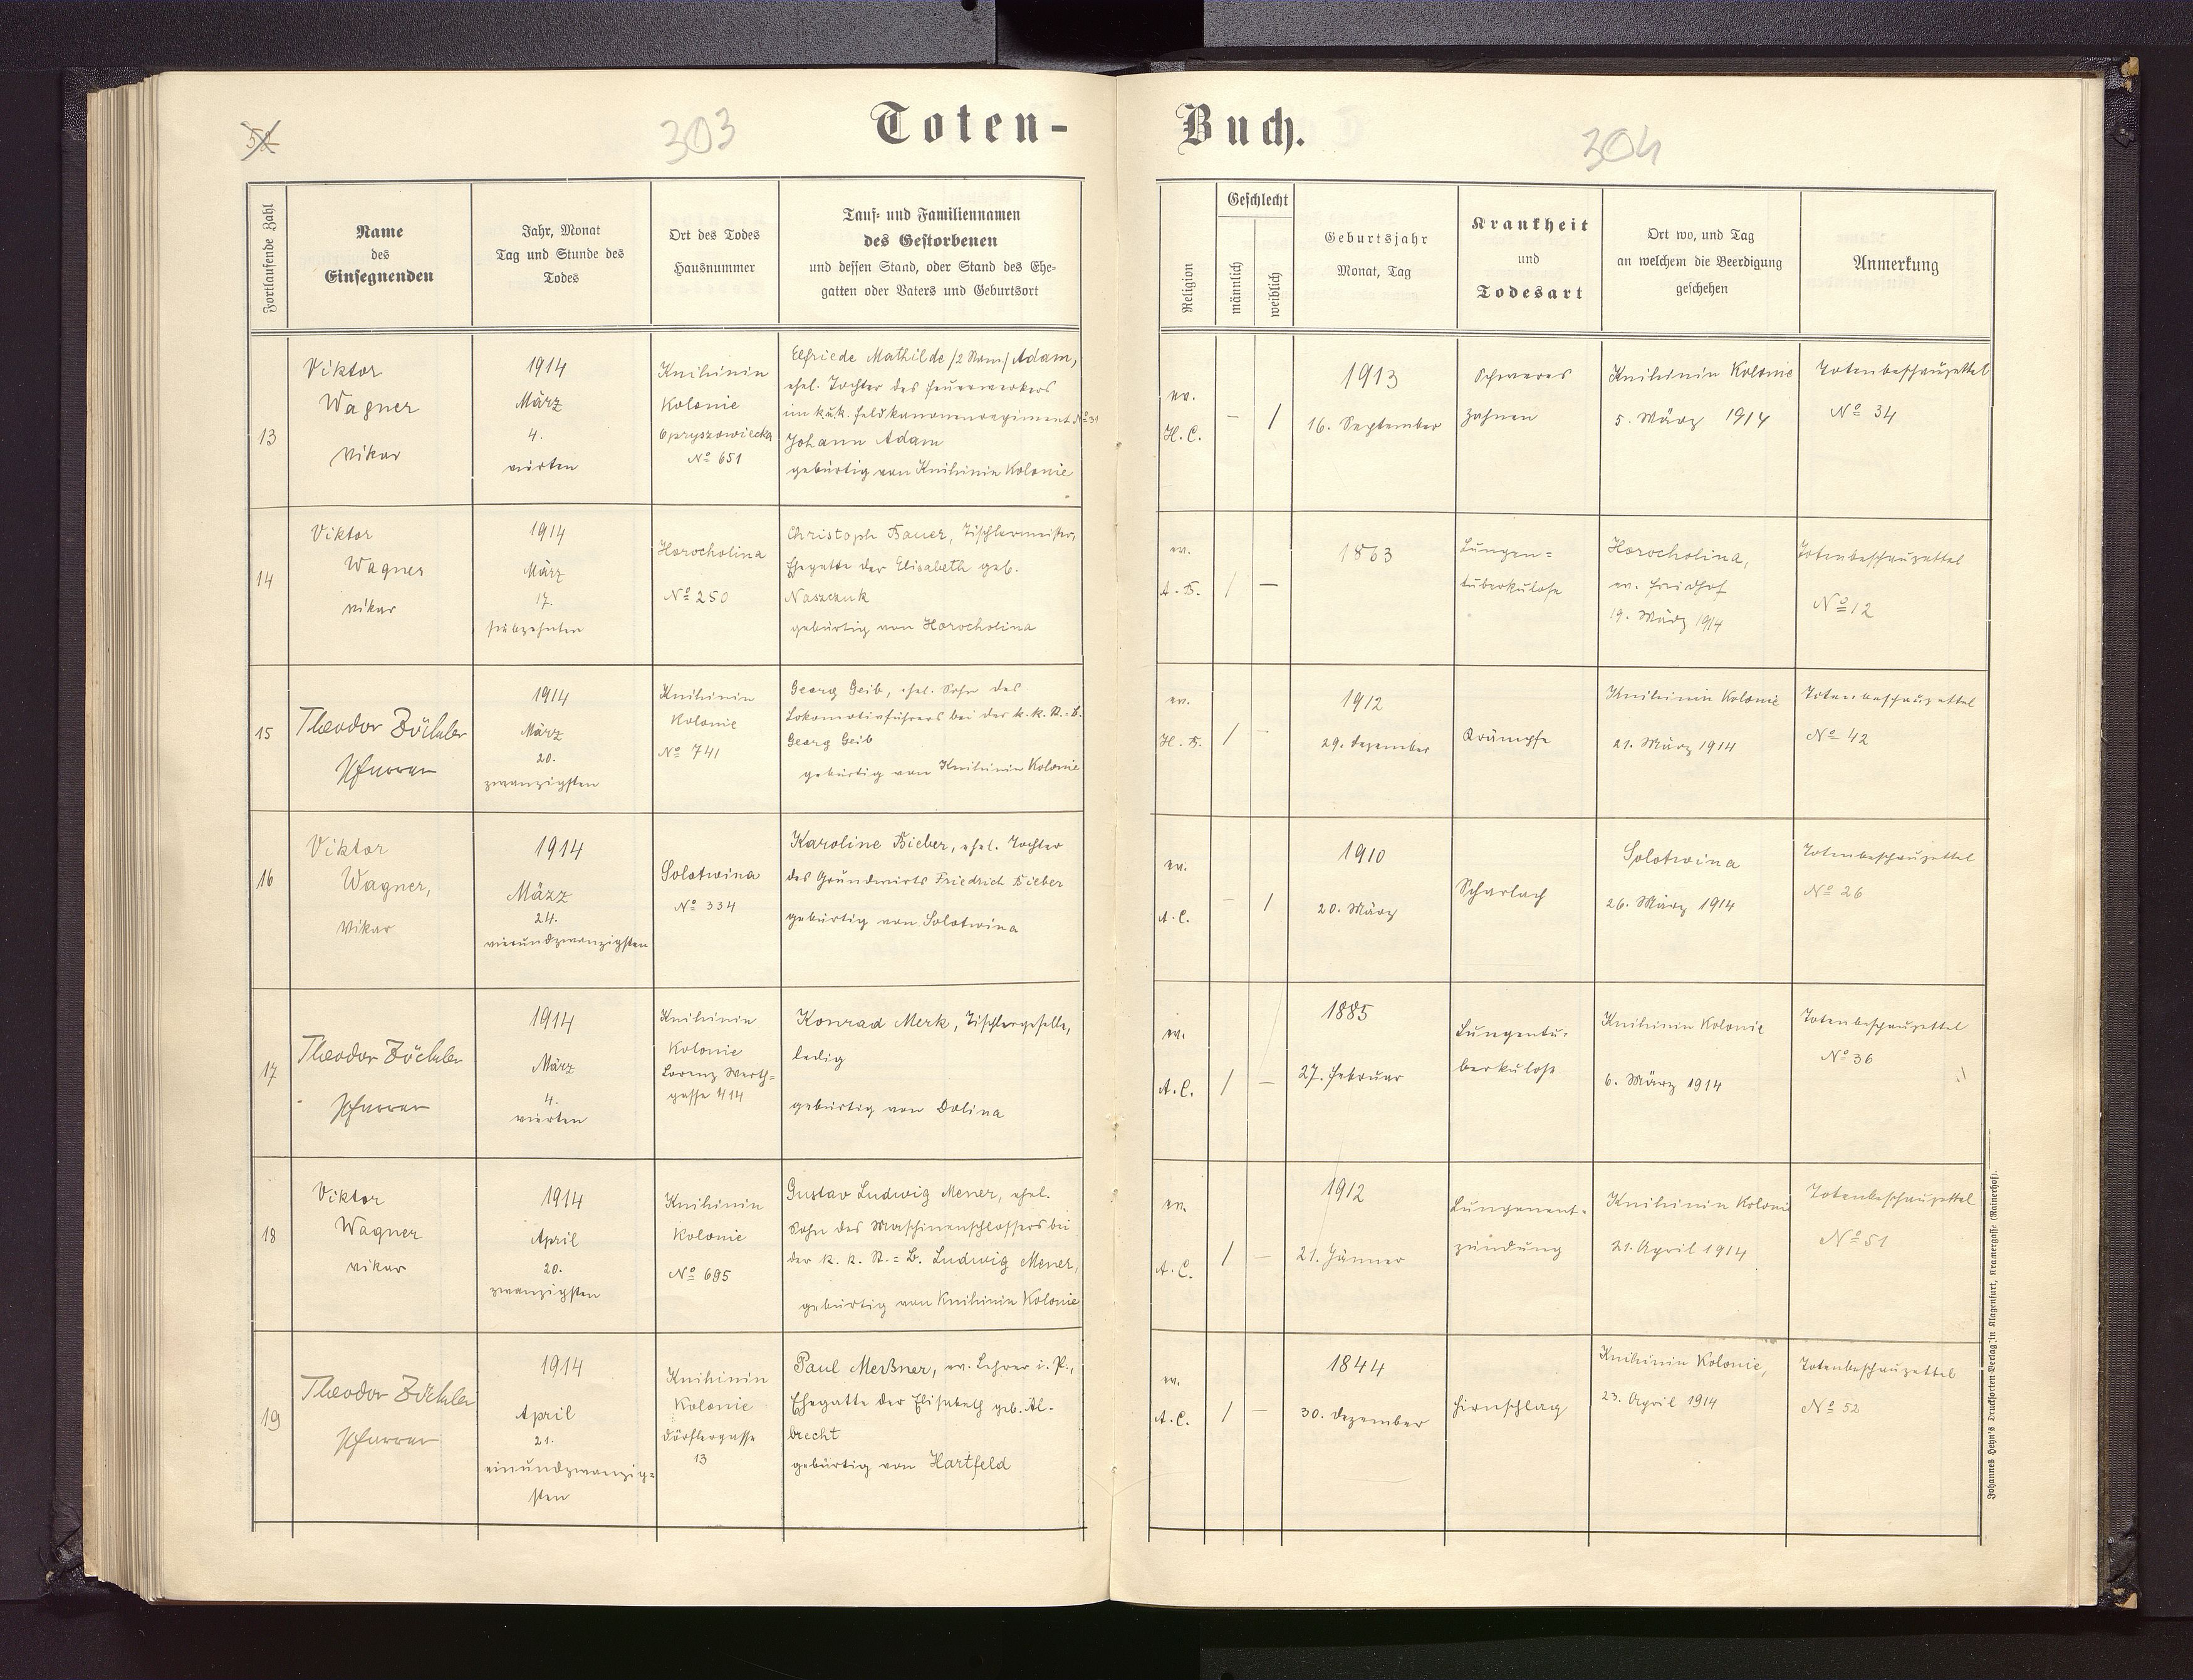 52
303
Toten-
Buch.
304
Fortlaufende Zahl
Name
des
Einsegnenden
Jahr, Monat
Tag und Stunde des
Todes
Ort des Todes
Hausnummer
Tauf- und Familiennamen
des Gestorbenen
und dessen Stand, oder Stand des Ehe-
gatten oder Vaters und Geburtsort
Religion
Geschlecht
männlich
weiblich
Geburtsjahr
Monat, Tag
Krankheit
und
Todesart
Ort wo, und Tag
an welchem die Beerdigung
geschehen
Anmerkung
13
Viktor
Wagner
Vikar
1914
März
4.
vierten
Knihinin
Kolonie
Opryszowiecka
Nº 651
Elfriede Mathilde /2 Nam./ Adam,
ehel. Tochter des Feuerwerkers
im k.u.k. Feldkanonenregiment Nº 31
Johann Adam
gebürtig von Knihinin Kolonie
ev.
H. C.
–
/
1913
16. September
Schweres
Zahnen
Knihinin Kolonie
5. März 1914
Totenbeschauzettel
Nº 34
14
Viktor
Wagner
Vikar
1914
März
17.
siebzehnten
Horocholina
Nº 250
Christoph Bauer, Tischlermeister,
Ehegatte der Elisabeth geb.
Naszczuk
gebürtig von Horocholina
ev.
A. B.
/
–
1863
Lungen=
tuberkulose
Horocholina,
ev. Friedhof
19. März 1914
Totenbeschauzettel
Nº 12
15
Theodor Zöckler
Pfarrer
1914
März
20.
zwanzigsten
Knihinin
Kolonie
Nº 741
Georg Geib, ehel. Sohn des
Lokomotivführers bei der k. k. St.-B.
Georg Geib
gebürtig von Knihinin Kolonie
ev.
H. B.
/
–
1912
29. Dezember
Krämpfe
Knihinin Kolonie
21. März 1914
Totenbeschauzettel
Nº 42
16
Viktor
Wagner,
Vikar
1914
März
24.
vierundzwanzigsten
Solotwina
Nº 334
Karoline Bieber, ehel. Tochter
des Grundwirts Friedrich Bieber
gebürtig von Solotwina
ev.
A. C.
–
/
1910
20. März
Scharlach
Solotwina
26. März 1914
Totenbeschauzettel
Nº 26
17
Theodor Zöckler
Pfarrer
1914
März
4.
vierten
Knihinin
Kolonie
Lorenz Werth-
gasse 414
Konrad Merk, Tischlergeselle,
ledig
gebürtig von Dolina
ev.
A. C.
/
–
1885
27. Februar
Lungentu-
berkulose
Knihinin Kolonie
6. März 1914
Totenbeschauzettel
Nº 36
18
Viktor
Wagner
Vikar
1914
April
20.
zwanzigsten
Knihinin
Kolonie
Nº 695
Gustav Ludwig Mener, ehel.
Sohn des Maschinenschlossers bei
der k. k. St.=B. Ludwig Mener,
gebürtig von Knihinin Kolonie
ev.
A. C.
/
–
1912
21. Jänner
Lungenent-
zündung
Knihinin Koloni
21. April 1914
Totenbeschauzettel
Nº 51
19
Theodor Zöckler
Pfarrer
1914
April
21.
einundzwanzig-
sten
Knihinin
Kolonie
Dörflergasse
13
Paul Meßner, ev. Lehrer i. P.,
Ehegatte der Elisabeth geb. Al-
brecht
gebürtig von Hartfeld
ev.
A. C.
/
–
1844
30. Dezember
Hirnschlag
Knihinin Kolonie,
23. April 1914
Totenbeschauzettel
Nº 52
Johannes Heyn's Drucksorten-Verlag in Klagenfurt, Kramergasse (Rainerhof).